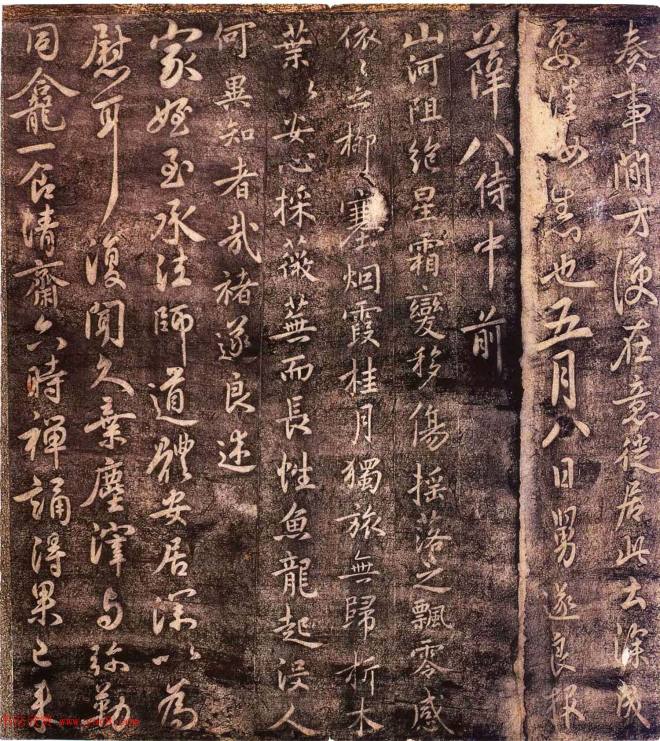 奏事閒方便在意從居此去深
也五月八日舅遂良報
薛八侍中前
山河阻絶星霜變移傷搖落之飄零感
依々之柳塞烟霞桂月獨旅無歸折木
葉以安心採薇蕪而長性魚龍起沒人
何異知者哉褚遂良述
家姪至承法師道體安居深以為
慰耳復聞久棄塵滓与弥勒
同龕一食清齋六時禪誦得果已来